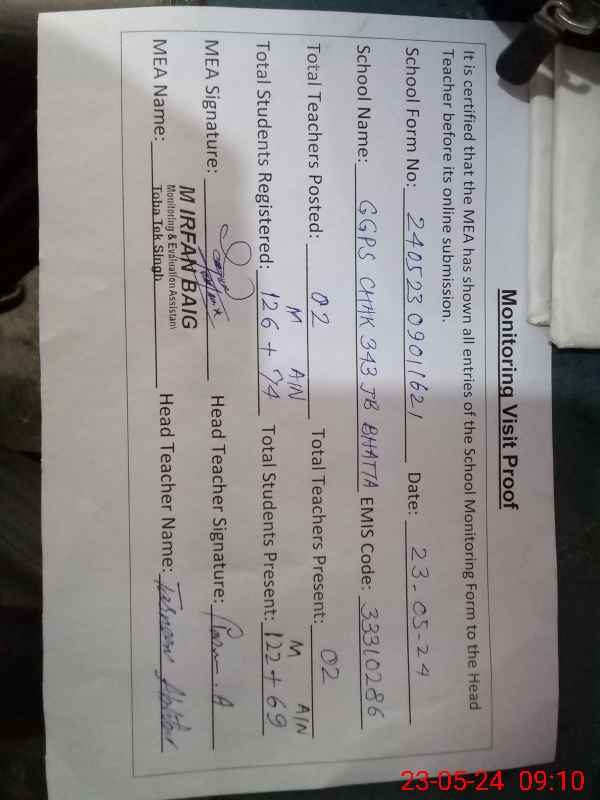 Monitoring Visit Proof
It is certified that the MEA has shown all entries of the School Monitoring Form to the Head
Teacher before its online submission.
School Form No: 240523 09011621 Date: 23-05-24
School Name: GGPS CHAK 343 JB BHATTA EMIS Code: 33310286
Total Teachers Posted: 02 Total Teachers Present: 02
M AIN M AIN
Total Students Registered: 126 + 74 Total Students Present: 122 + 69
MEA Signature: Head Teacher Signature:
M IRFAN BAIG
Monitoring & Evaluation Assistant
MEA Name: Toba Tek Singh Head Teacher Name:
23-05-24 09:10